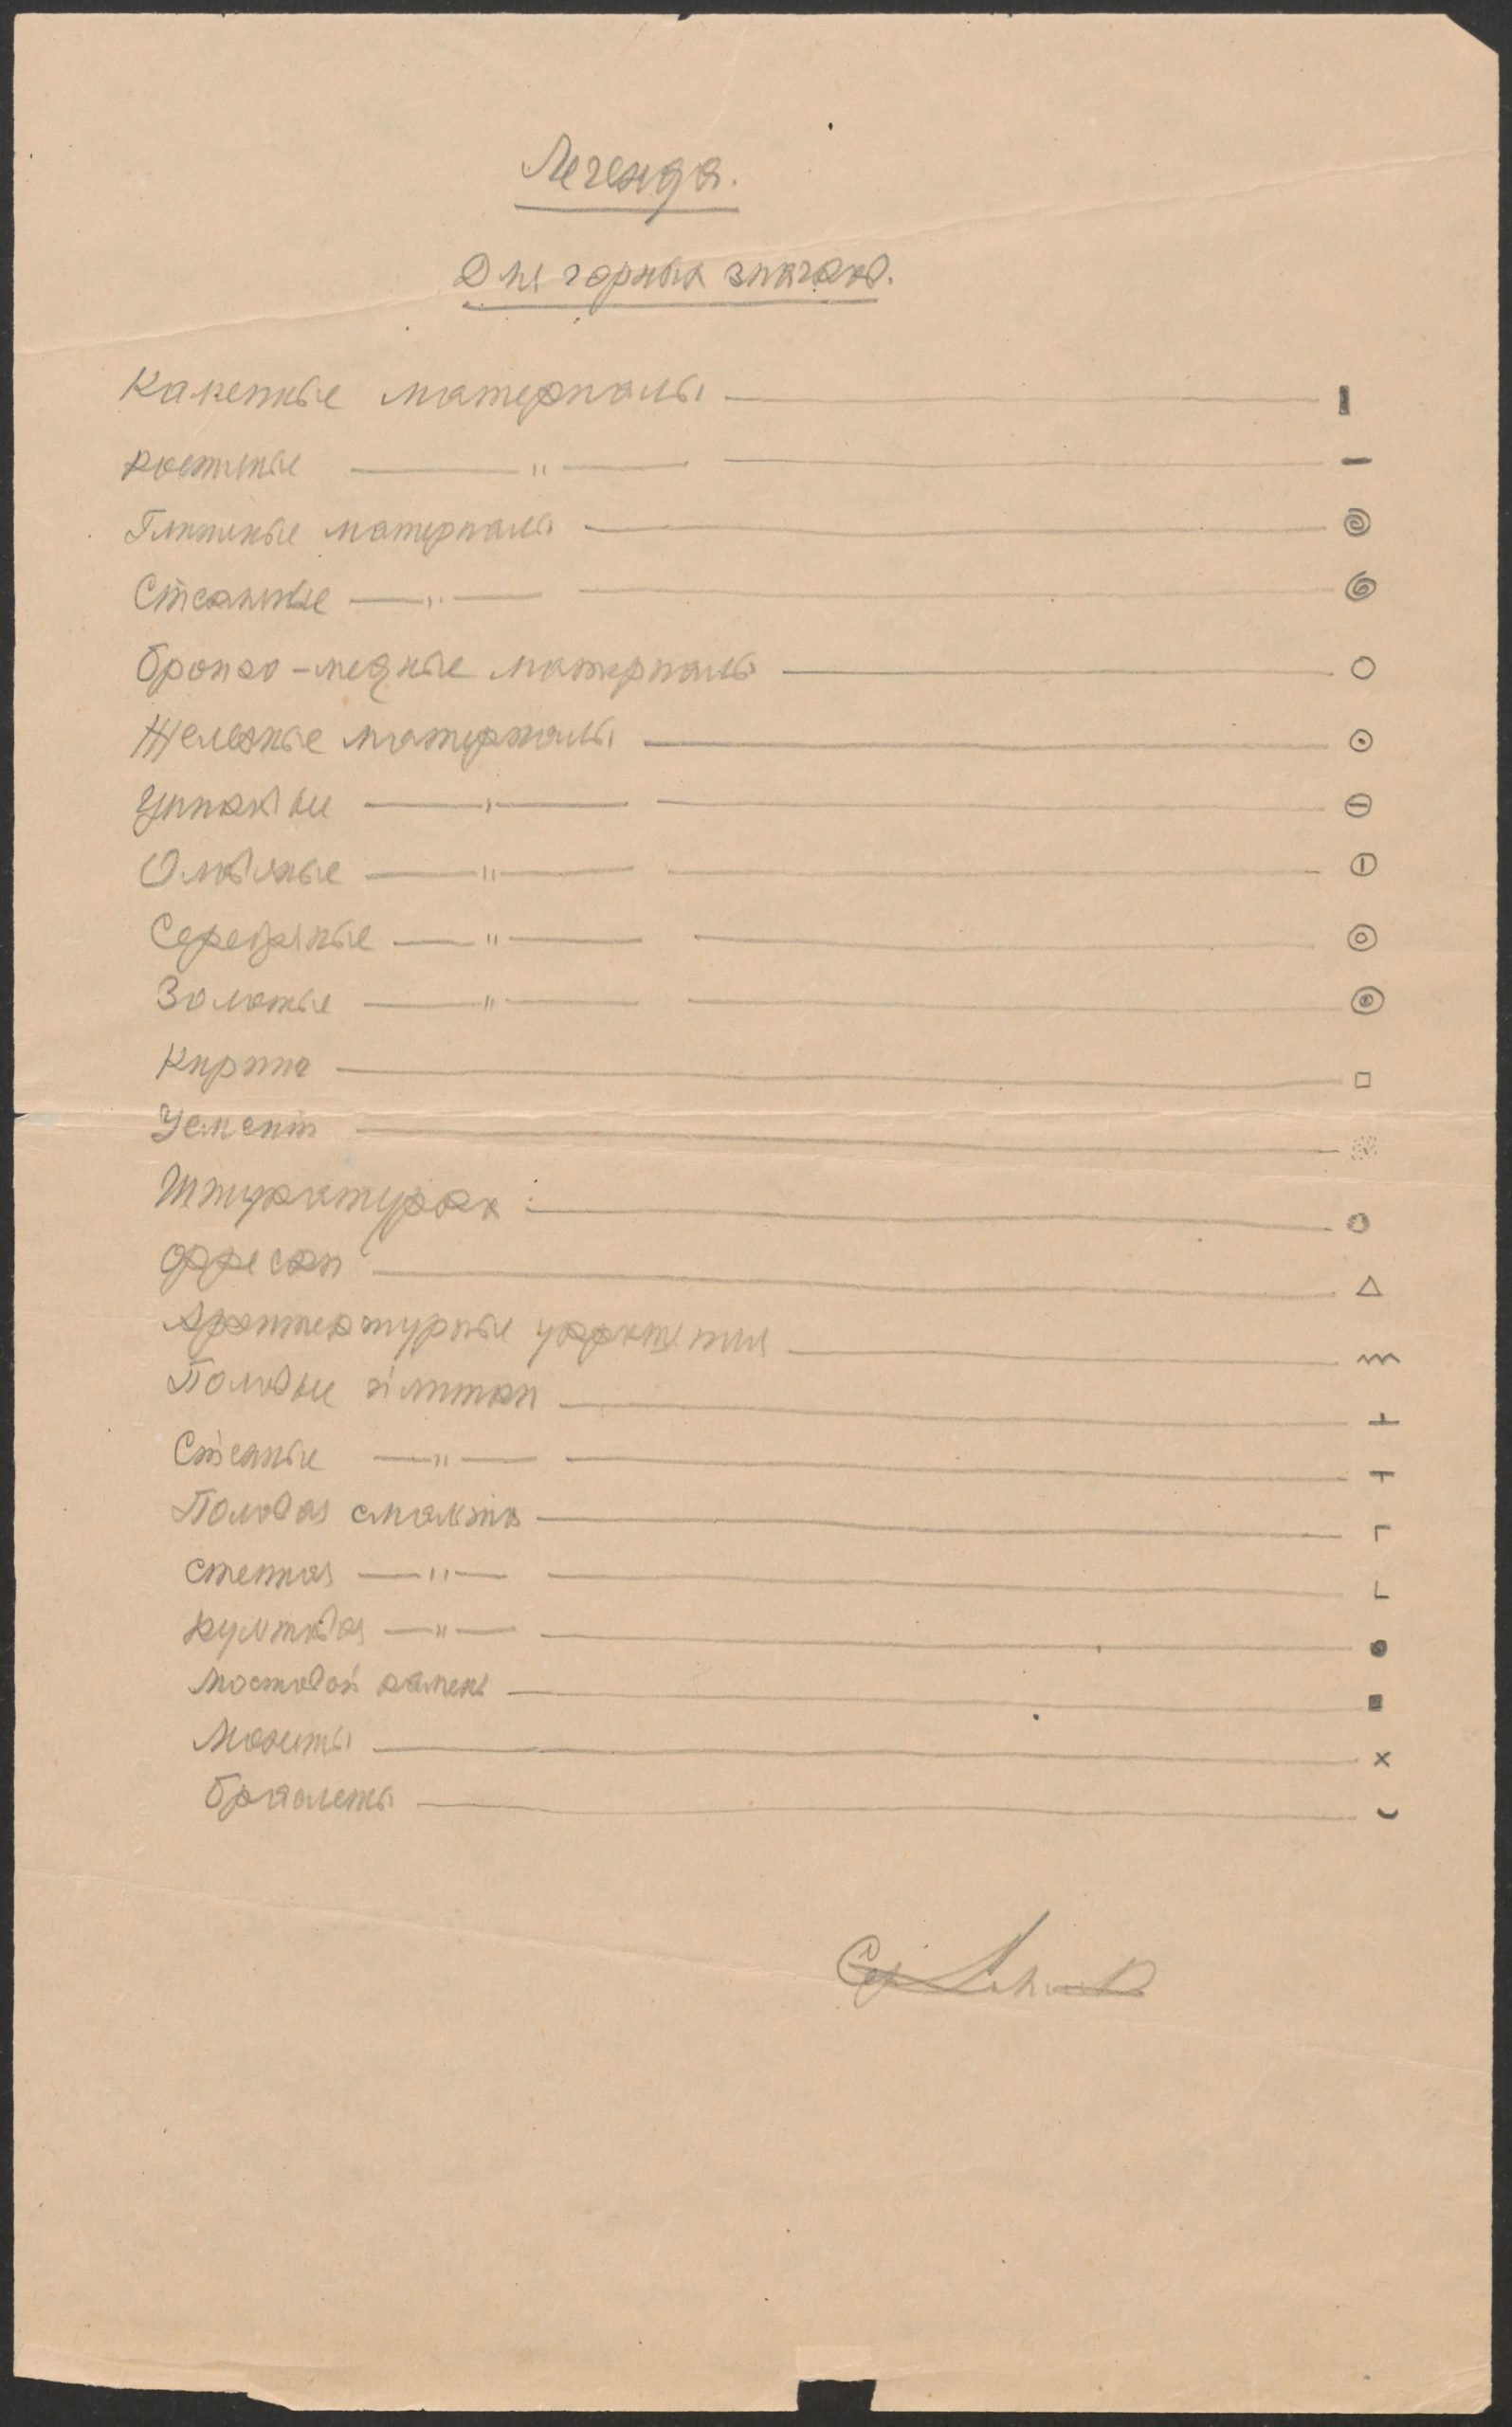 Легенда.
Для горных значков.
Каменные материалы
Костяные — " —
Глиняные материалы
Стеклянные — " —
Бронзо-медные материалы
Железные материалы
Цинковые — " —
Оловяные — " —
Серебряные — " —
Золотые — " —
Кирпич
Цемент
Штукатурка
Фрески
Архитектурные украшения
Половые плитки
Стеные — " —
Половая смальта
стенная — " —
— " —
Мостовой камень
Монеты
Браслеты